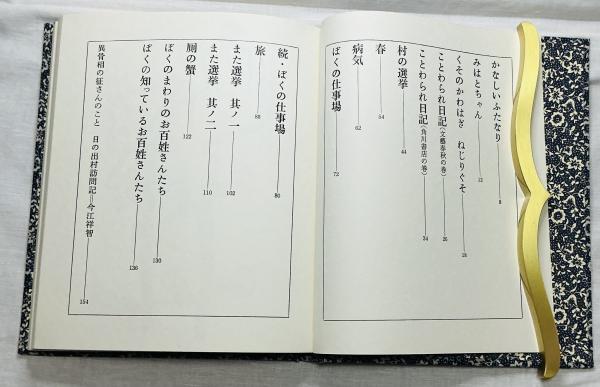 かなしいふたなり 8
みはとちゃん 12
くそのかわはぎ ねじりぐそ 18
ことわられ日記(文藝春秋の巻) 26
ことわられ日記(角川書店の巻) 34
村の選挙 44
春 54
病気 62
ぼくの仕事場 72
続・ぼくの仕事場 80
旅 88
また選挙 其ノ一 102
また選挙 其ノ二 110
厠の蟹 122
ぼくのまわりのお百姓さんたち 130
ぼくの知っているお百姓さんたち 136
異骨相の征さんのこと 日の出村訪問記=今江祥智 154